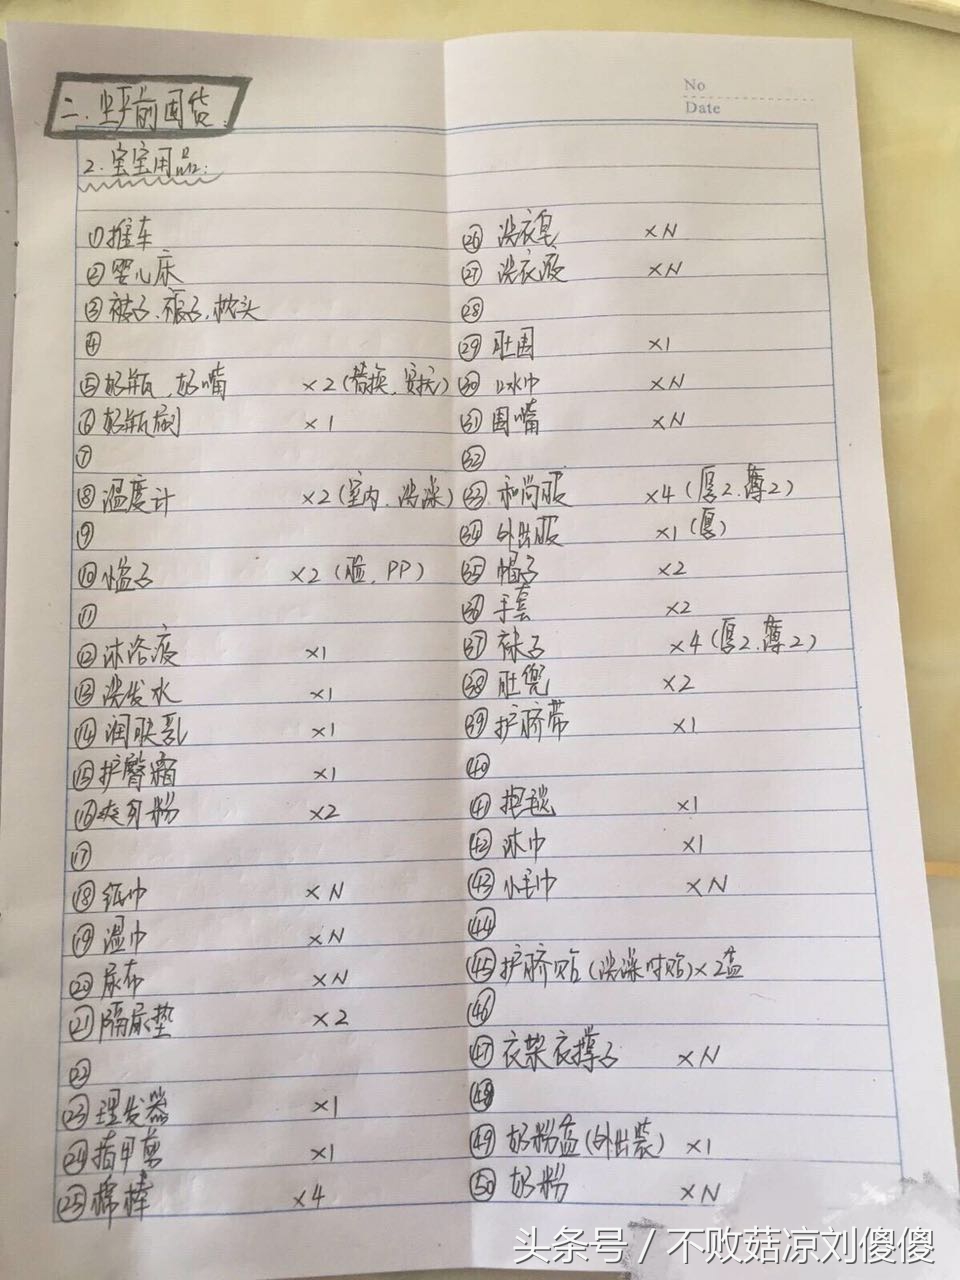 No
Date
二.生产前囤货.
2.宝宝用品:
①推车
②婴儿床
③被子、褥子、枕头
④
⑤奶瓶、奶嘴 ×2(替换、安抚)
⑥奶瓶刷 ×1
⑦
⑧温度计 ×2(室内、洗澡)
⑨
⑩小盆子 ×2(脸、PP)
⑪
⑫沐浴液 ×1
⑬洗发水 ×1
⑭润肤乳 ×1
⑮护臀霜 ×1
⑯爽身粉 ×2
⑰
⑱纸巾 ×N
⑲湿巾 ×N
⑳尿布 ×N
㉑隔尿垫 ×2
㉒
㉓理发器 ×1
㉔指甲剪 ×1
㉕棉棒 ×4
㉖洗衣皂 ×N
㉗洗衣液 ×N
㉘
㉙肚围 ×1
㉚口水巾 ×N
㉛围嘴 ×N
㉜
㉝和尚服 ×4(厚2、薄2)
㉞外出服 ×1(厚)
㉟帽子 ×2
㊱手套 ×2
㊲袜子 ×4(厚2、薄2)
㊳肚兜 ×2
㊴护脐带 ×1
㊵
㊶抱毯 ×1
㊷沐巾 ×1
㊸小毛巾 ×N
㊹
㊺护脐贴(洗澡时贴)×2盒
㊻
㊼衣架衣撑子 ×N
㊽
㊾奶粉盒(外出装) ×1
㊿奶粉 ×N
头条号/不败菇凉刘傻傻